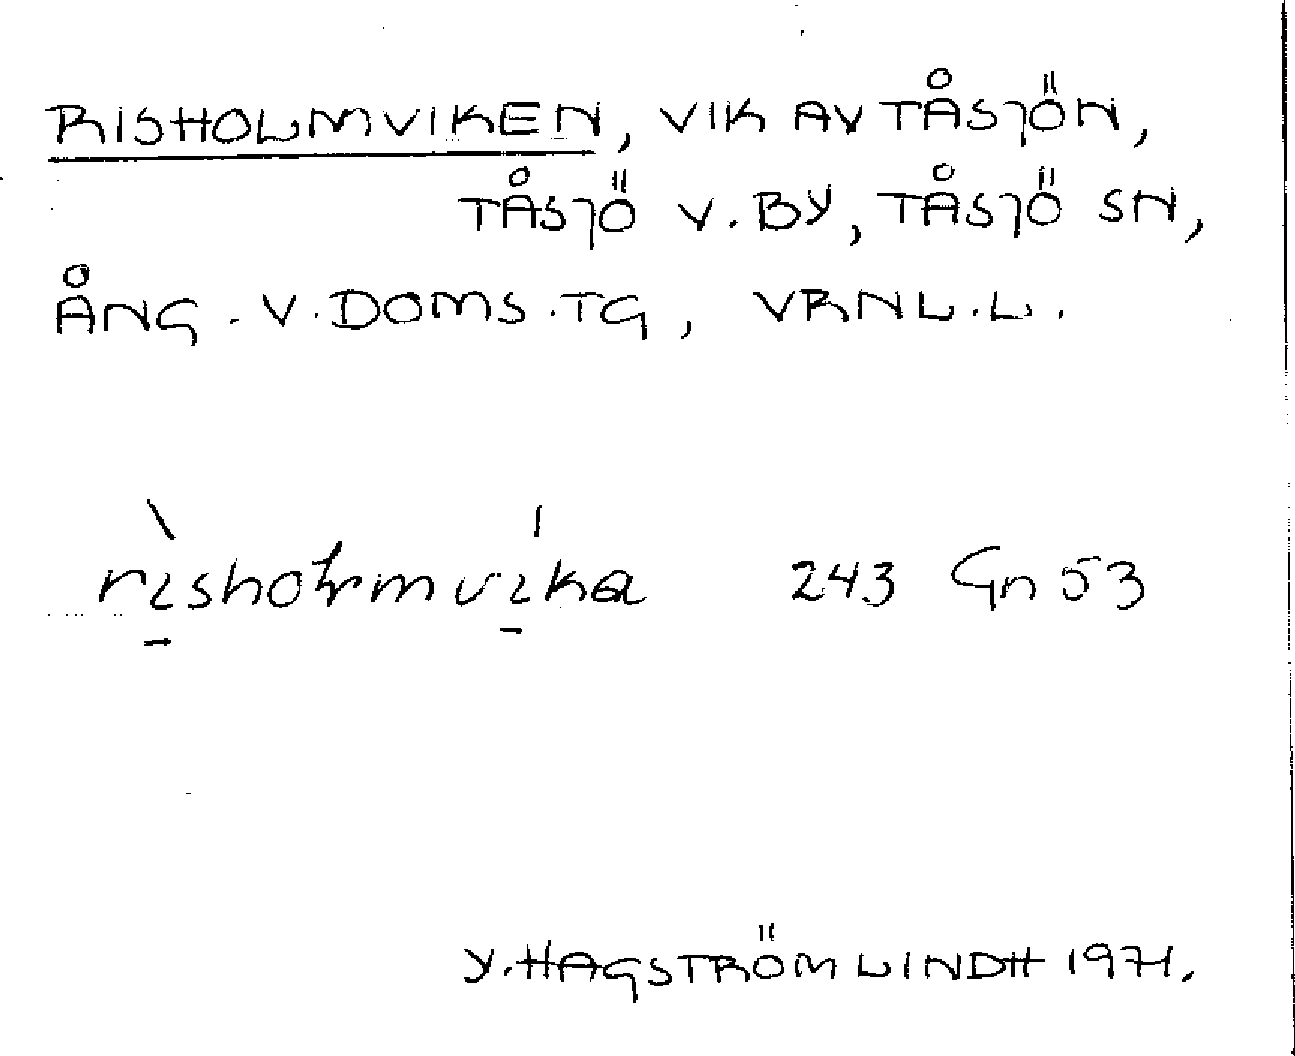 RISHOLMVIKEN, VIK AV TÅSJÖN,
TÅSJÖ V. BY, TÅSJÖ SN,
ÅNG. V. DOMS. TG, VRNL. L.
risholmvika 243 Gn 53
Y. HAGSTRÖM LINDH 1971.